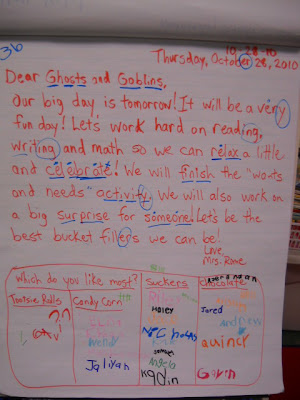 36
10-28-10
Thursday, October 28, 2010
Dear Ghosts and Goblins,
Our big day is tomorrow! It will be a very
fun day! Let's work hard on reading,
writing and math so we can relax a little
and celebrate! We will finish the "wants
and needs" activity. We will also work on
a big surprise for someone! Let's be the
best bucket fillers we can be!
Love,
Mrs. Rome
Which do you like most?
Tootsie Rolls Candy Corn Suckers Chocolate
Haley Jared
Andrew
Jaliyah Angela
Kaitlin Gavin